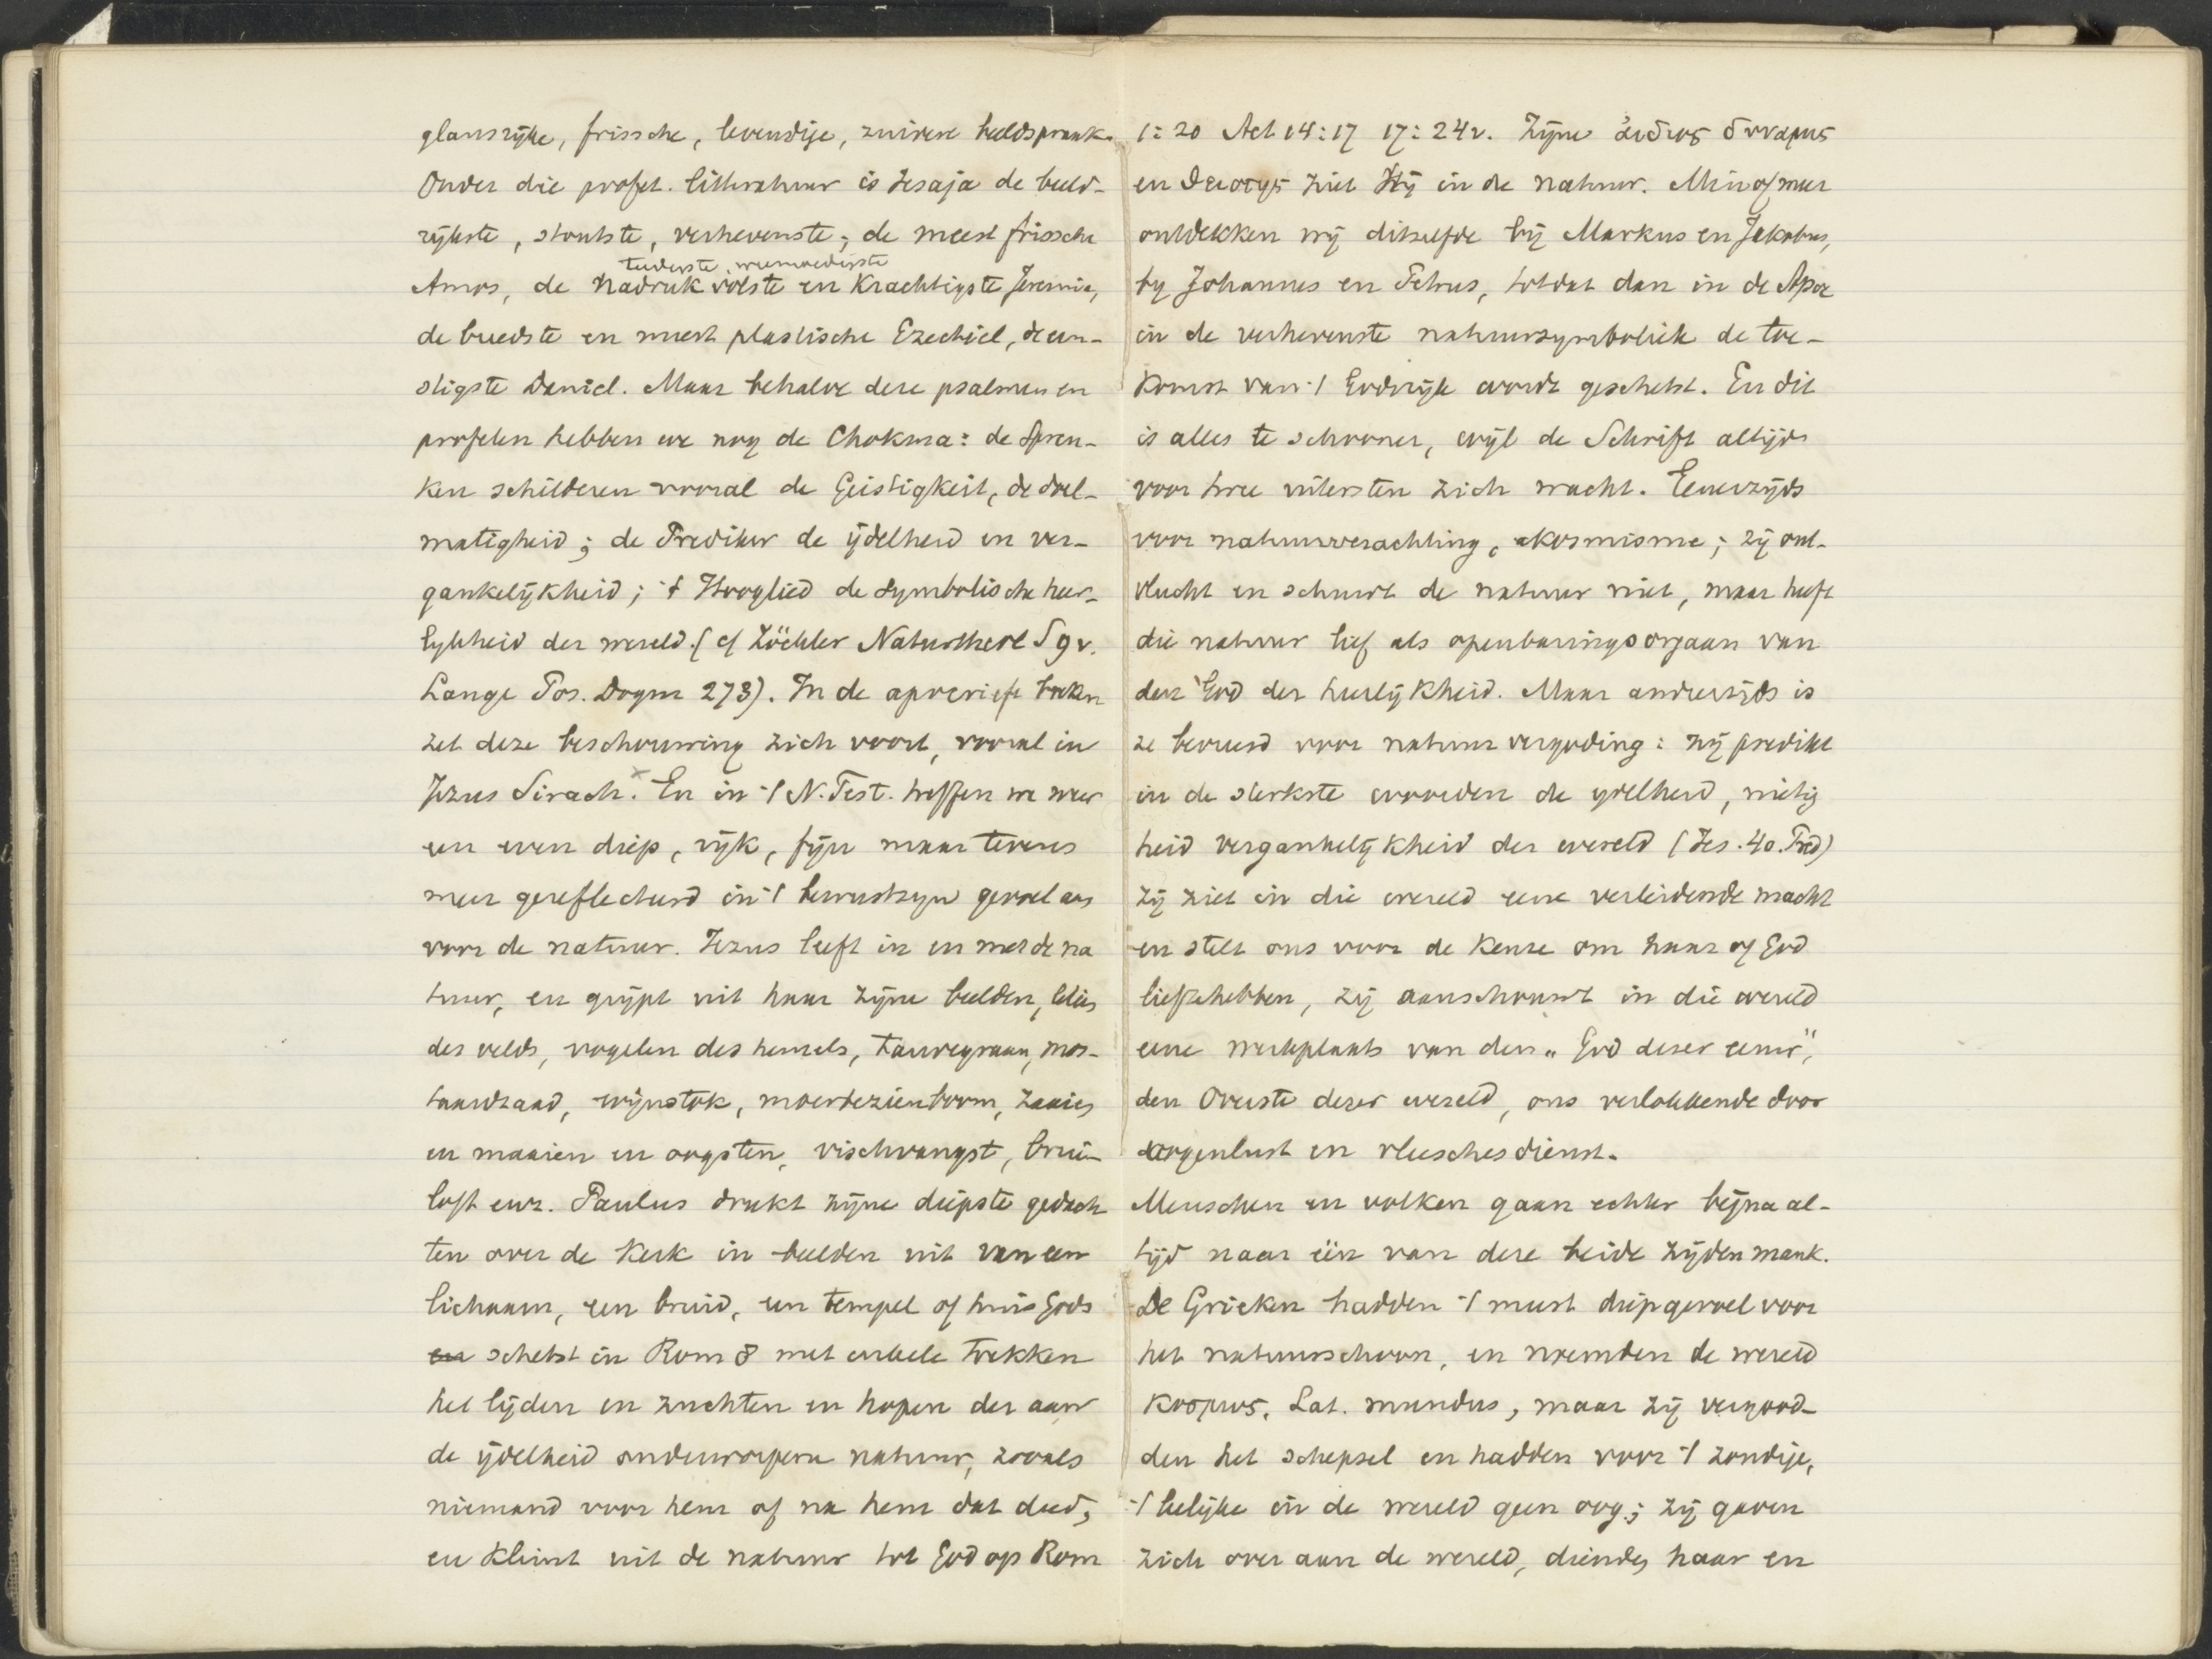 glansrijke, frissche, levendige, zuivere beeldspraak.
Onder die profet. litteratuur is Jesaja de beeld-
rijkste, stoutste, verhevenste; de meest frissche
teederste, weemoedigste
Amos, de nadrukvolste en krachtigste Jeremia,
de breedste en meest plastische Ezechiel, de ern-
stigste Daniel. Maar behalve deze psalmen en
profeten hebben we nog de Chokma: de Spreu-
ken schilderen vooral de Geistigkeit, de doel-
matigheid; de Prediker de ijdelheid en ver-
gankelijkheid; 't Hooglied de symbolische heer-
lykheid der wereld. (cf Zöckler Naturtheol S 9 v.
Lange Pos. Dogm 273). In de apocriefe boeken
zet deze beschouwing zich voort, vooral in
Jezus Sirach. x En in 't N. Test. treffen we weer
een even diep, rijk, fijn maar tevens
meer gereflecteerd in 't bewustzyn gevoel aan
voor de natuur. Jezus leeft in en met de na
tuur, en grijpt uit haar zijne beelden, lelies
des velds, vogelen des hemels, tarwegraan, mos-
taardzaad, wijnstok, moerbezienboom, zaaien
en maaien en oogsten, vischvangst, brui-
loft enz. Paulus drukt zijne diepste gedach
ten over de Kerk in beelden uit van een
lichaam, een bruid, een tempel of huis Gods
en schetst in Rom 8 met enkele trekken
het lijden en zuchten en hopen der aan
de ijdelheid onderworpene natuur, zooals
niemand voor hem of na hem dat deed,
en klimt uit de natuur tot God op Rom
1:20 Act 14:17 17:24v. Zijne ἀιδιος δυναμις
en θειοτης ziet Hij in de natuur. Min of meer
ontdekken wij ditzelfde bij Markus en Jakobus,
by Johannes en Petrus, totdat dan in de Apoc
in de verhevenste natuursymboliek de toe-
komst van 't Godsrijk wordt geschetst. En dit
is alles te schooner, wijl de Schrift altijd
voor twee uitersten zich wacht. Eenerzijds
voor natuurverachting, akosmisme; zij ont-
vlucht en schuwt de natuur niet, maar heeft
die natuur lief als openbaringsorgaan van
den God der heerlijkheid. Maar anderzijds is
ze bevreesd voor natuurvergoding: zij predikt
in de sterkste woorden de ydelheid, nietig
heid vergankelijkheid der wereld (Jes. 40. Pred)
zij ziet in die wereld eene verleidende macht
en stelt ons voor de keuze om haar of God
lief te hebben, zij aanschouwt in die wereld
eene werkplaats van den „God dezer eeuw",
den Overste dezer wereld, ons verlokkende door
oogenlust en vleeschesdienst.
Menschen en volken gaan echter bijna al-
tijd naar één van deze beide zijden mank.
De Grieken hadden 't meest diep gevoel voor
het natuurschoon, en noemden de wereld
κοσμος, Lat. mundus, maar zij vergood-
den het schepsel en hadden voor 't zondige,
't leelijke in de wereld geen oog; zij gaven
zich over aan de wereld, diende haar en